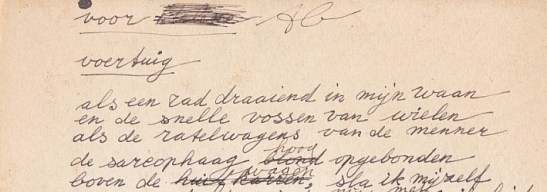 voor Ab
voertuig
als een rad draaiend in mijn waan
en de snelle vossen van wielen
als de ratelwagens van de menner
hoog
de sarcophaag blond opgebonden
wagen
boven de karren, sla ik mijzelf